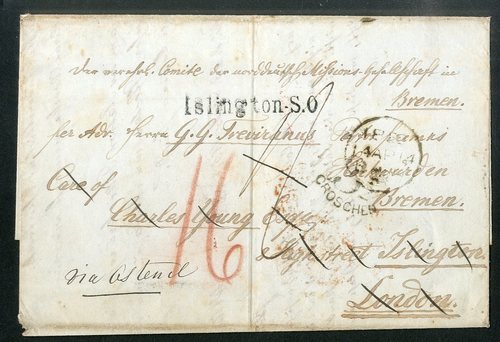 der verehrl. Comité der norddeutschen Missions-Gesellschaft in
Bremen.
Islington-S.O
per Adr. Herrn G. G. Treviranus
Bremen.
Care of
Charles Young Esqre
16
GROSCHEN
street Islington.
via Ostende
London.